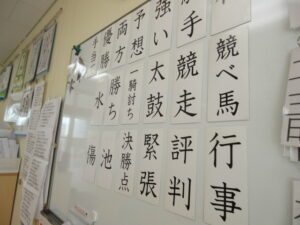 競べ馬
行事
手
競走
評判
強い
太鼓
緊張
予想
一騎討ち
決勝点
両方
勝ち
池
優勝
水
傷